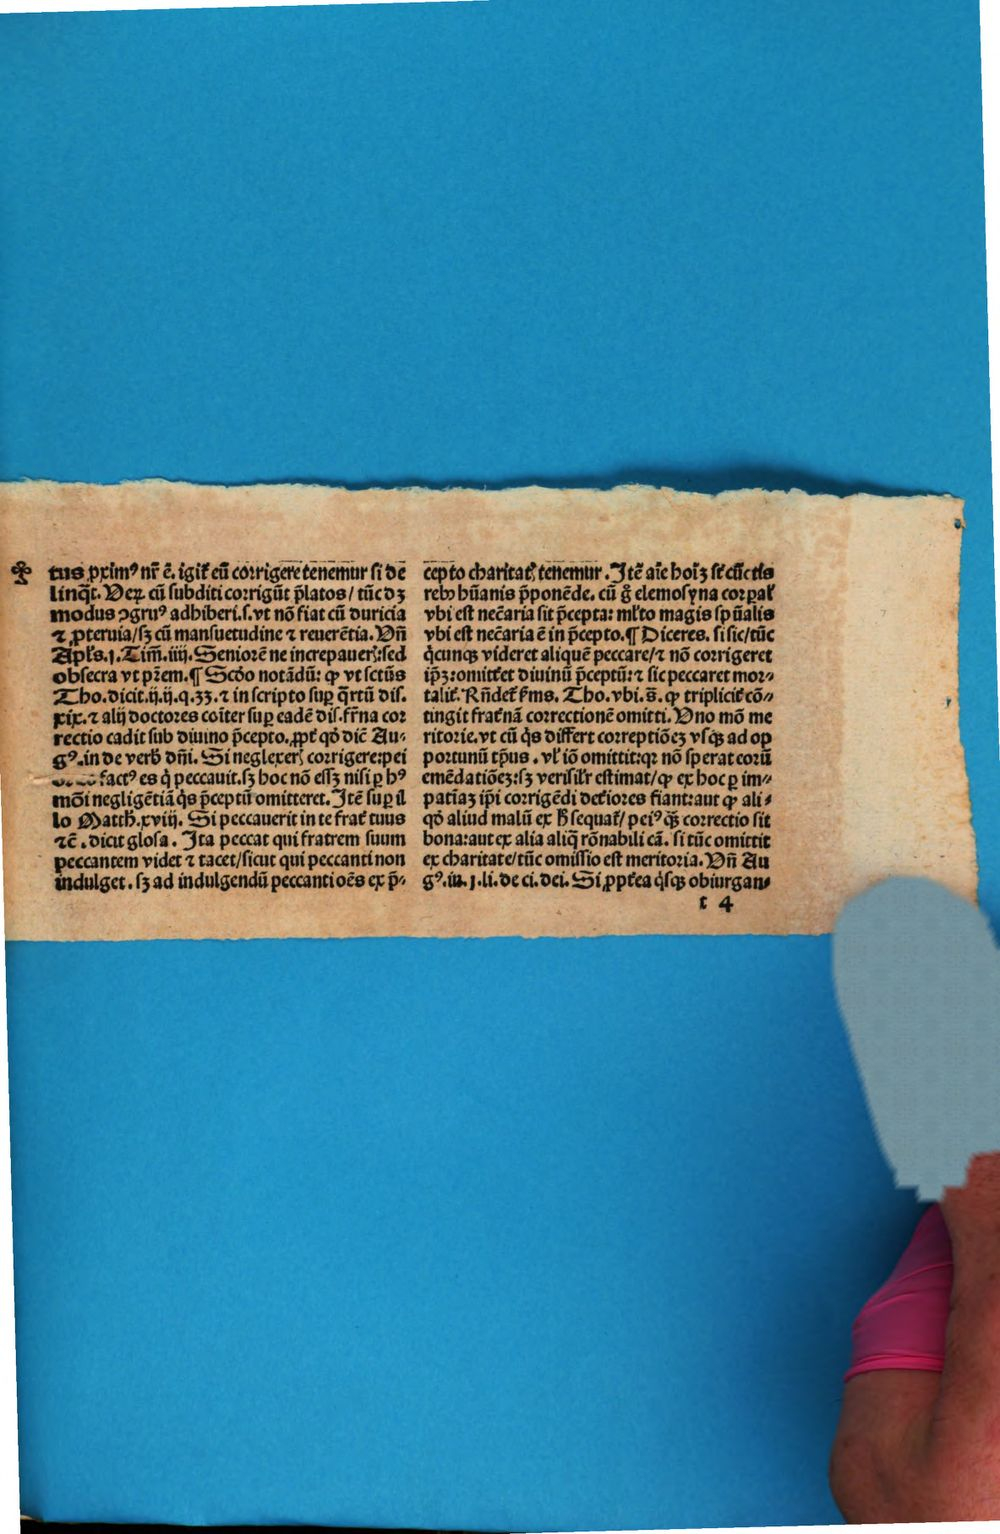 tus ꝓximꝰ nr̄ ē. igit̄ eū corrigere tenemur si de
linq̄t. Veꝝ cū subditi corrigūt p̄latos / tūc dꝫ
modus ꝯgruꝰ adhiberi.s.vt nō fiat cū duricia
⁊ ꝓteruia/sꝫ cū mansuetudine ⁊ reuerētia. Vn̄
Apl̄s.j.Tim̄.iiij.Seniorē ne increpaueꝝ:sed
obsecra vt pr̄em.¶ Scd̄o notādū: ꝙ vt sctūs
Tho.dicit.ij.ij.q.33.⁊ in scripto suꝑ q̄rtū dis.
xix.⁊ alij doctores coīter suꝑ eadē dis.fr̄na cor
rectio cadit sub diuino p̄cepto.ꝓpt̄ qd̄ dic̄ Au⸗
gꝰ.in de verb̄ dn̄i. Si neglexeꝝ corrigere:pei
factꝰ es q̇ peccauit.sꝫ hoc nō essꝫ nisi ꝑ hꝰ
mōi negligētiā q̇s p̄ceptū omitteret. Itē suꝑ il
lo Matth.xviij. Si peccauerit in te frat̄ tuus
⁊c̄ . dicit glosa . Ita peccat qui fratrem suum
peccantem videt ⁊ tacet/sicut qui peccanti non
indulget . sꝫ ad indulgendū peccanti oēs ex p̄⸗
cepto charitat̄ tenemur . Itē aīe hoīꝫ sꝑ cūctis
rebꝰ hūanis p̄ponēde. cū g̊ elemosyna corꝑal̄
vbi est necāria sit p̄cepta: ml̄to magis spūalis
vbi est necāria ē in p̄cepto.¶ Diceres. si sic/tūc
q̇cunqꝫ videret aliquē peccare/⁊ nō corrigeret
ip̄ꝫ:omitt̄et diuinū p̄ceptū:⁊ sic peccaret mor⸗
talit̄. Rn̄det̄ f̄ms. Tho.vbi.s̄. ꝙ triplicit̄ cō⸗
tingit frat̄nā correctionē omitti. Vno mō me
ritorie.vt cū q̇s differt correptiōeꝫ vsqꝫ ad op
portunū tp̄us . vl̄ iō omittit:qꝛ nō sperat eorū
emēdatiōeꝫ:sꝫ verisil̄r estimat/ꝙ ex hoc ꝑ im⸗
patiāꝫ ip̄i corrigēdi det̄iores fiant:aut ꝙ ali⸗
qd̄ aliud malū ex h̄ sequat̄/ peiꝰ q̄ꝫ correctio sit
bona:aut ex alia aliq̄ rōnabili cā. si tūc omittit
ex charitate/tūc omissio est meritoria. Vn̄ Au
gꝰ.in.j.li.de ci.dei. Si ꝓpt̄ea q̇sqꝫ obiurgan⸗
t 4